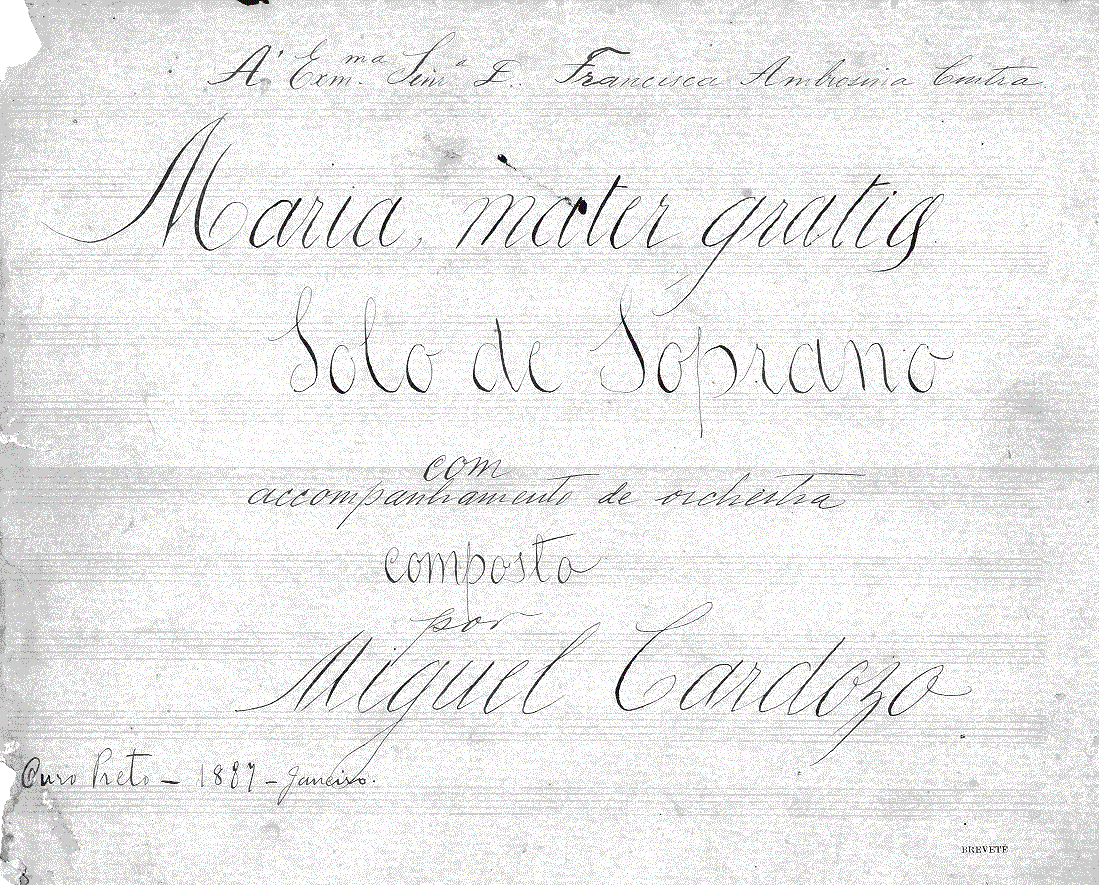 A' Exm.ma Senr.a D. Francisca Ambrosina
Maria, mater gratiæ
Solo de Soprano
com
accompanhamento de orchestra
composto
por
Miguel Cardozo
Ouro Preto - 1887 - Janeiro.
BREVETÉ